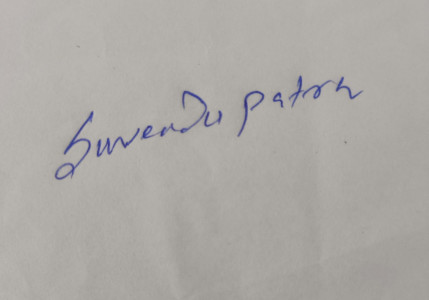 Suvendu Patra